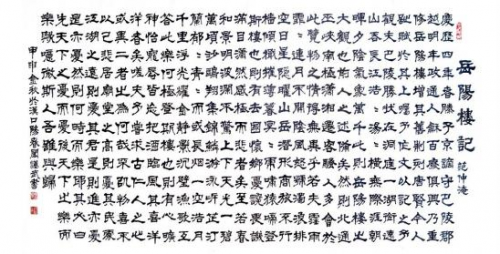 岳陽樓記 范仲淹
慶歷四年春滕子京謫守巴陵郡
越明年政通人和百廢俱興乃重
修岳陽樓增其舊制刻唐賢今人
詩賦於其上囑予作文以記之予
觀夫巴陵勝狀在洞庭一湖銜遠
山吞長江浩浩湯湯橫無際涯朝
暉夕陰氣象萬千此則岳陽樓之
大觀也前人之述備矣然則北通
巫峽南極瀟湘遷客騷人多會於
此覽物之情得無異乎若夫霪雨
霏霏連月不開陰風怒號濁浪排
空日星隱曜山岳潛形商旅不行
檣傾楫摧薄暮冥冥虎嘯猿啼登
斯樓也則有去國懷鄉憂讒畏譏
滿目蕭然感極而悲者矣至若春
和景明波瀾不驚上下天光一碧
萬頃沙鷗翔集錦鱗游泳岸芷汀
蘭郁郁青青而或長煙一空皓月
千里浮光躍金靜影沉璧漁歌互
答此樂何極登斯樓也則有心曠
神怡寵辱皆忘把酒臨風其喜洋
洋者矣嗟夫予嘗求古仁人之心
或異二者之為何哉不以物喜不
以己悲居廟堂之高則憂其民處
江湖之遠則憂其君是進亦憂退
亦憂然則何時而樂耶其必曰
先天下之憂而憂後天下之樂而
樂歟噫微斯人吾誰與歸
甲申金秋於漢口